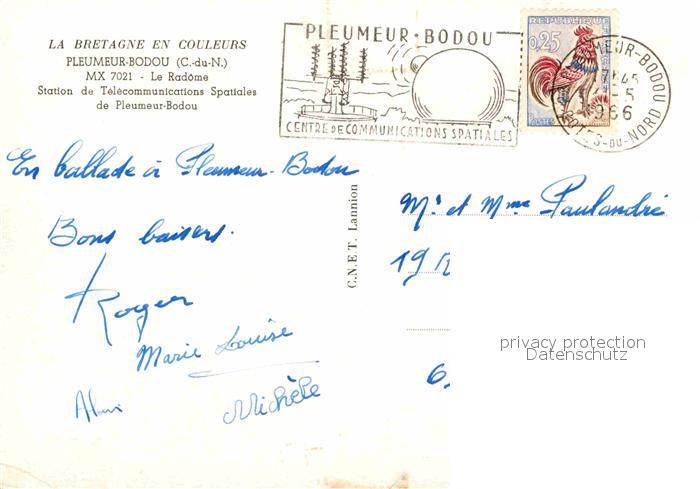 LA BRETAGNE EN COULEURS
PLEUMEUR-BODOU (C.-du-N.)
MX 7021 - Le Radôme
Station de Télécommunications Spatiales
de Pleumeur-Bodou
PLEUMEUR-BODOU
CENTRE DE COMMUNICATIONS SPATIALES
REPUBLIQUE
0,25
POSTES
MEUR-BODOU
45
5
966
TES-DU-NORD
En ballade à Pleumeur-Bodou
Bons baisers.
Roger
Marie Louise
Michèle
C.N.E.T. Lannion
Mr et Mme Paulandré
19
6,
privacy protection
Datenschutz